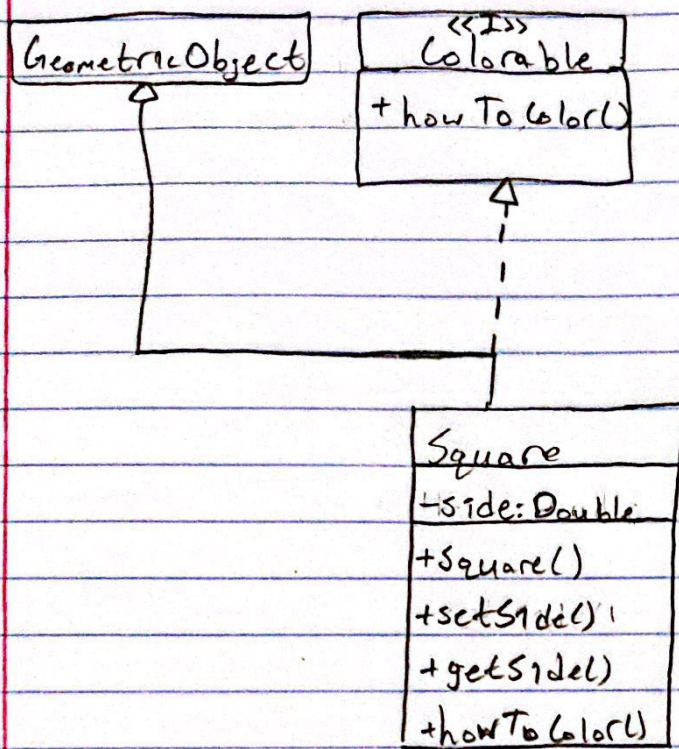 GeometricObject
<<I>>
Colorable
+ howToColor()
Square
-side: Double
+Square()
+setSide()
+getSide()
+howToColor()